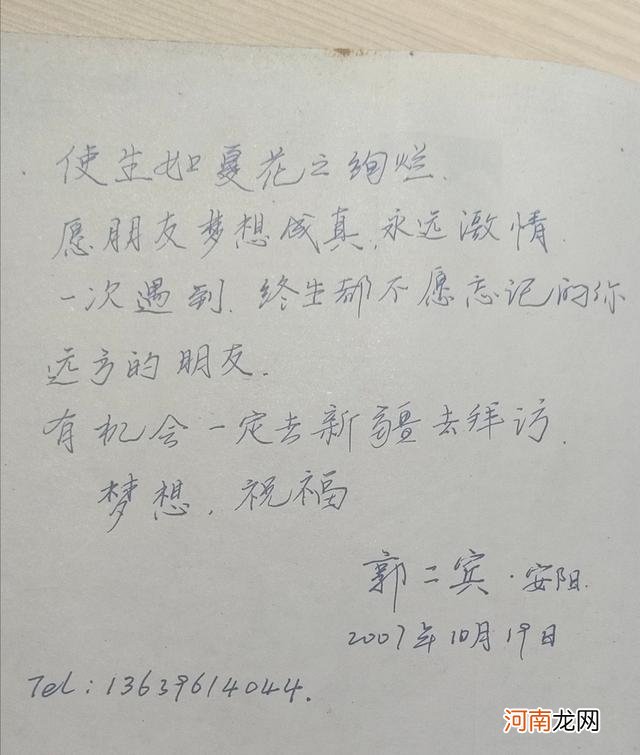 使生如夏花之绚烂.
愿朋友梦想成真.永远激情.
一次遇到.终生都不愿忘记的你
远方的朋友.
有机会一定去新疆去拜访.
梦想.祝福
郭二宾·安阳.
2007年10月19日
Tel:13639614044.
河南龙网